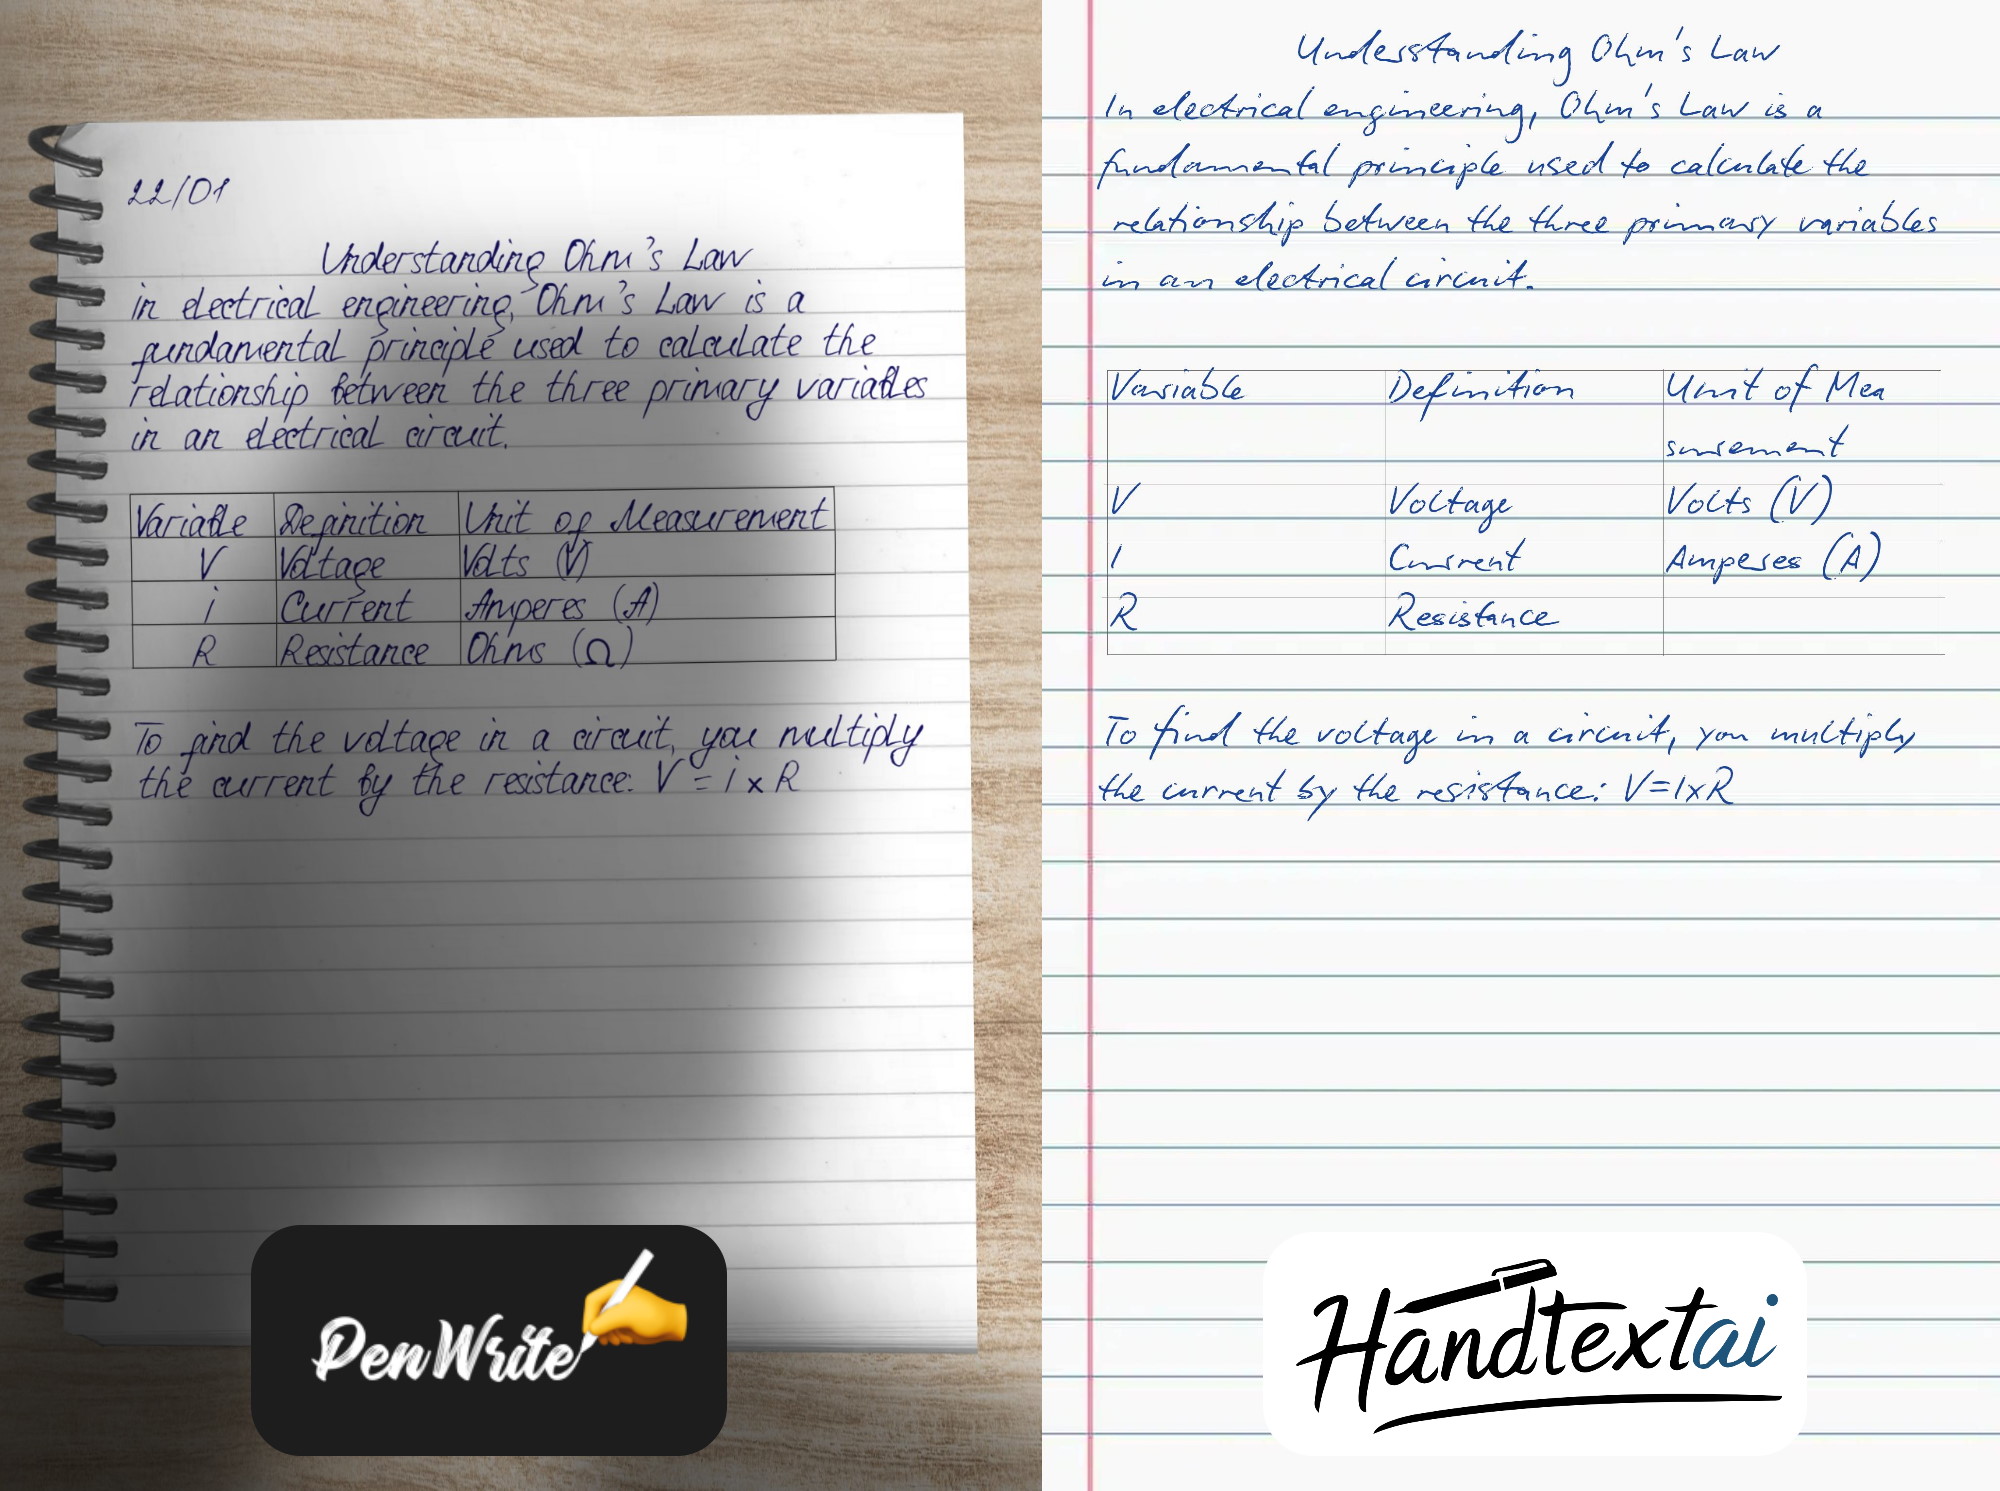 22/01
Understanding Ohm's Law
in electrical engineering, Ohm's Law is a
fundamental principle used to calculate the
relationship between the three primary variables
in an electrical circuit.
Variable Definition Unit of Measurement
V Voltage Volts (V)
i Current Amperes (A)
R Resistance Ohms (Ω)
To find the voltage in a circuit, you multiply
the current by the resistance: V = i x R
PenWrite
Understanding Ohm's Law
In electrical engineering, Ohm's Law is a
fundamental principle used to calculate the
relationship between the three primary variables
in an electrical circuit.
Variable Definition Unit of Mea
surement
V Voltage Volts (V)
I Current Amperes (A)
R Resistance
To find the voltage in a circuit, you multiply
the current by the resistance: V=IxR
Handtextai